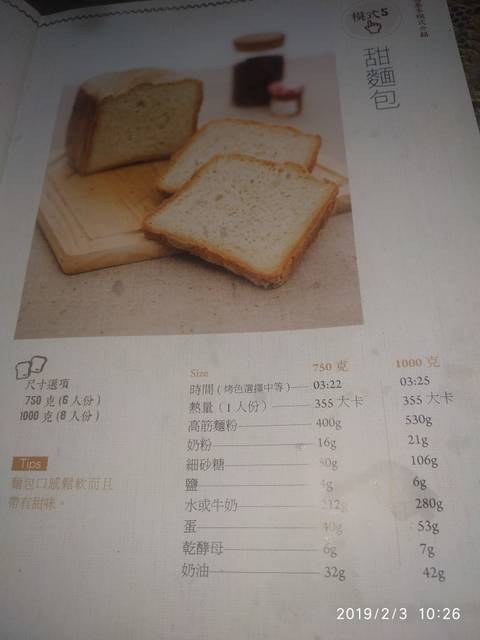 模式5
甜麵包
尺寸選項
750 克 (6 人份)
1000 克 (8 人份)
Tips
麵包口感鬆軟而且
帶有甜味。
Size 750 克 1000 克
時間 (烤色選擇中等) 03:22 03:25
熱量 (1 人份) 355 大卡 355 大卡
高筋麵粉 400g 530g
奶粉 16g 21g
細砂糖 106g
鹽 6g
水或牛奶 212g 280g
蛋 40g 53g
乾酵母 6g 7g
奶油 32g 42g
2019/2/3 10:26